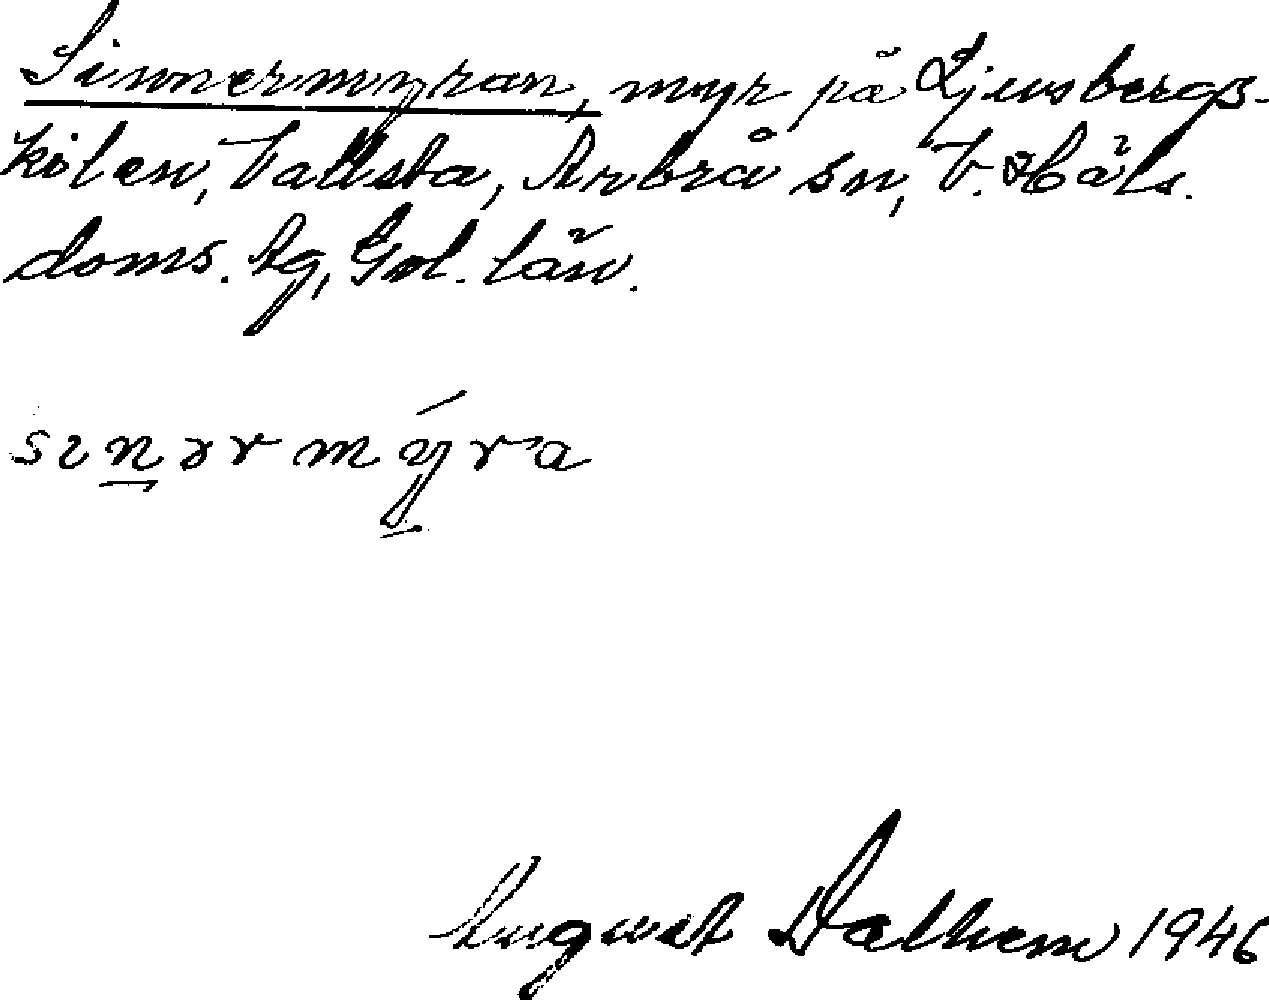 Sinnermyran, myr på Ljusbergs-
kilen, Vallsta, Arbrå sn, V. Häls.
doms. lg, Gvl. län.
sınər mýra
August Dalhem 1946